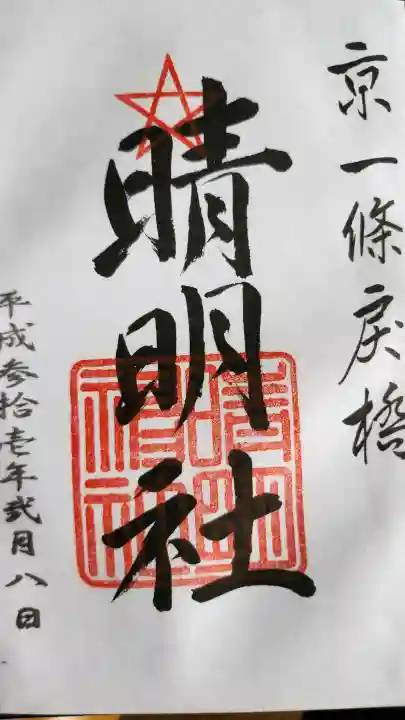 京一條戻橋
晴明社
晴明神社
平成参拾壱年弐月八日